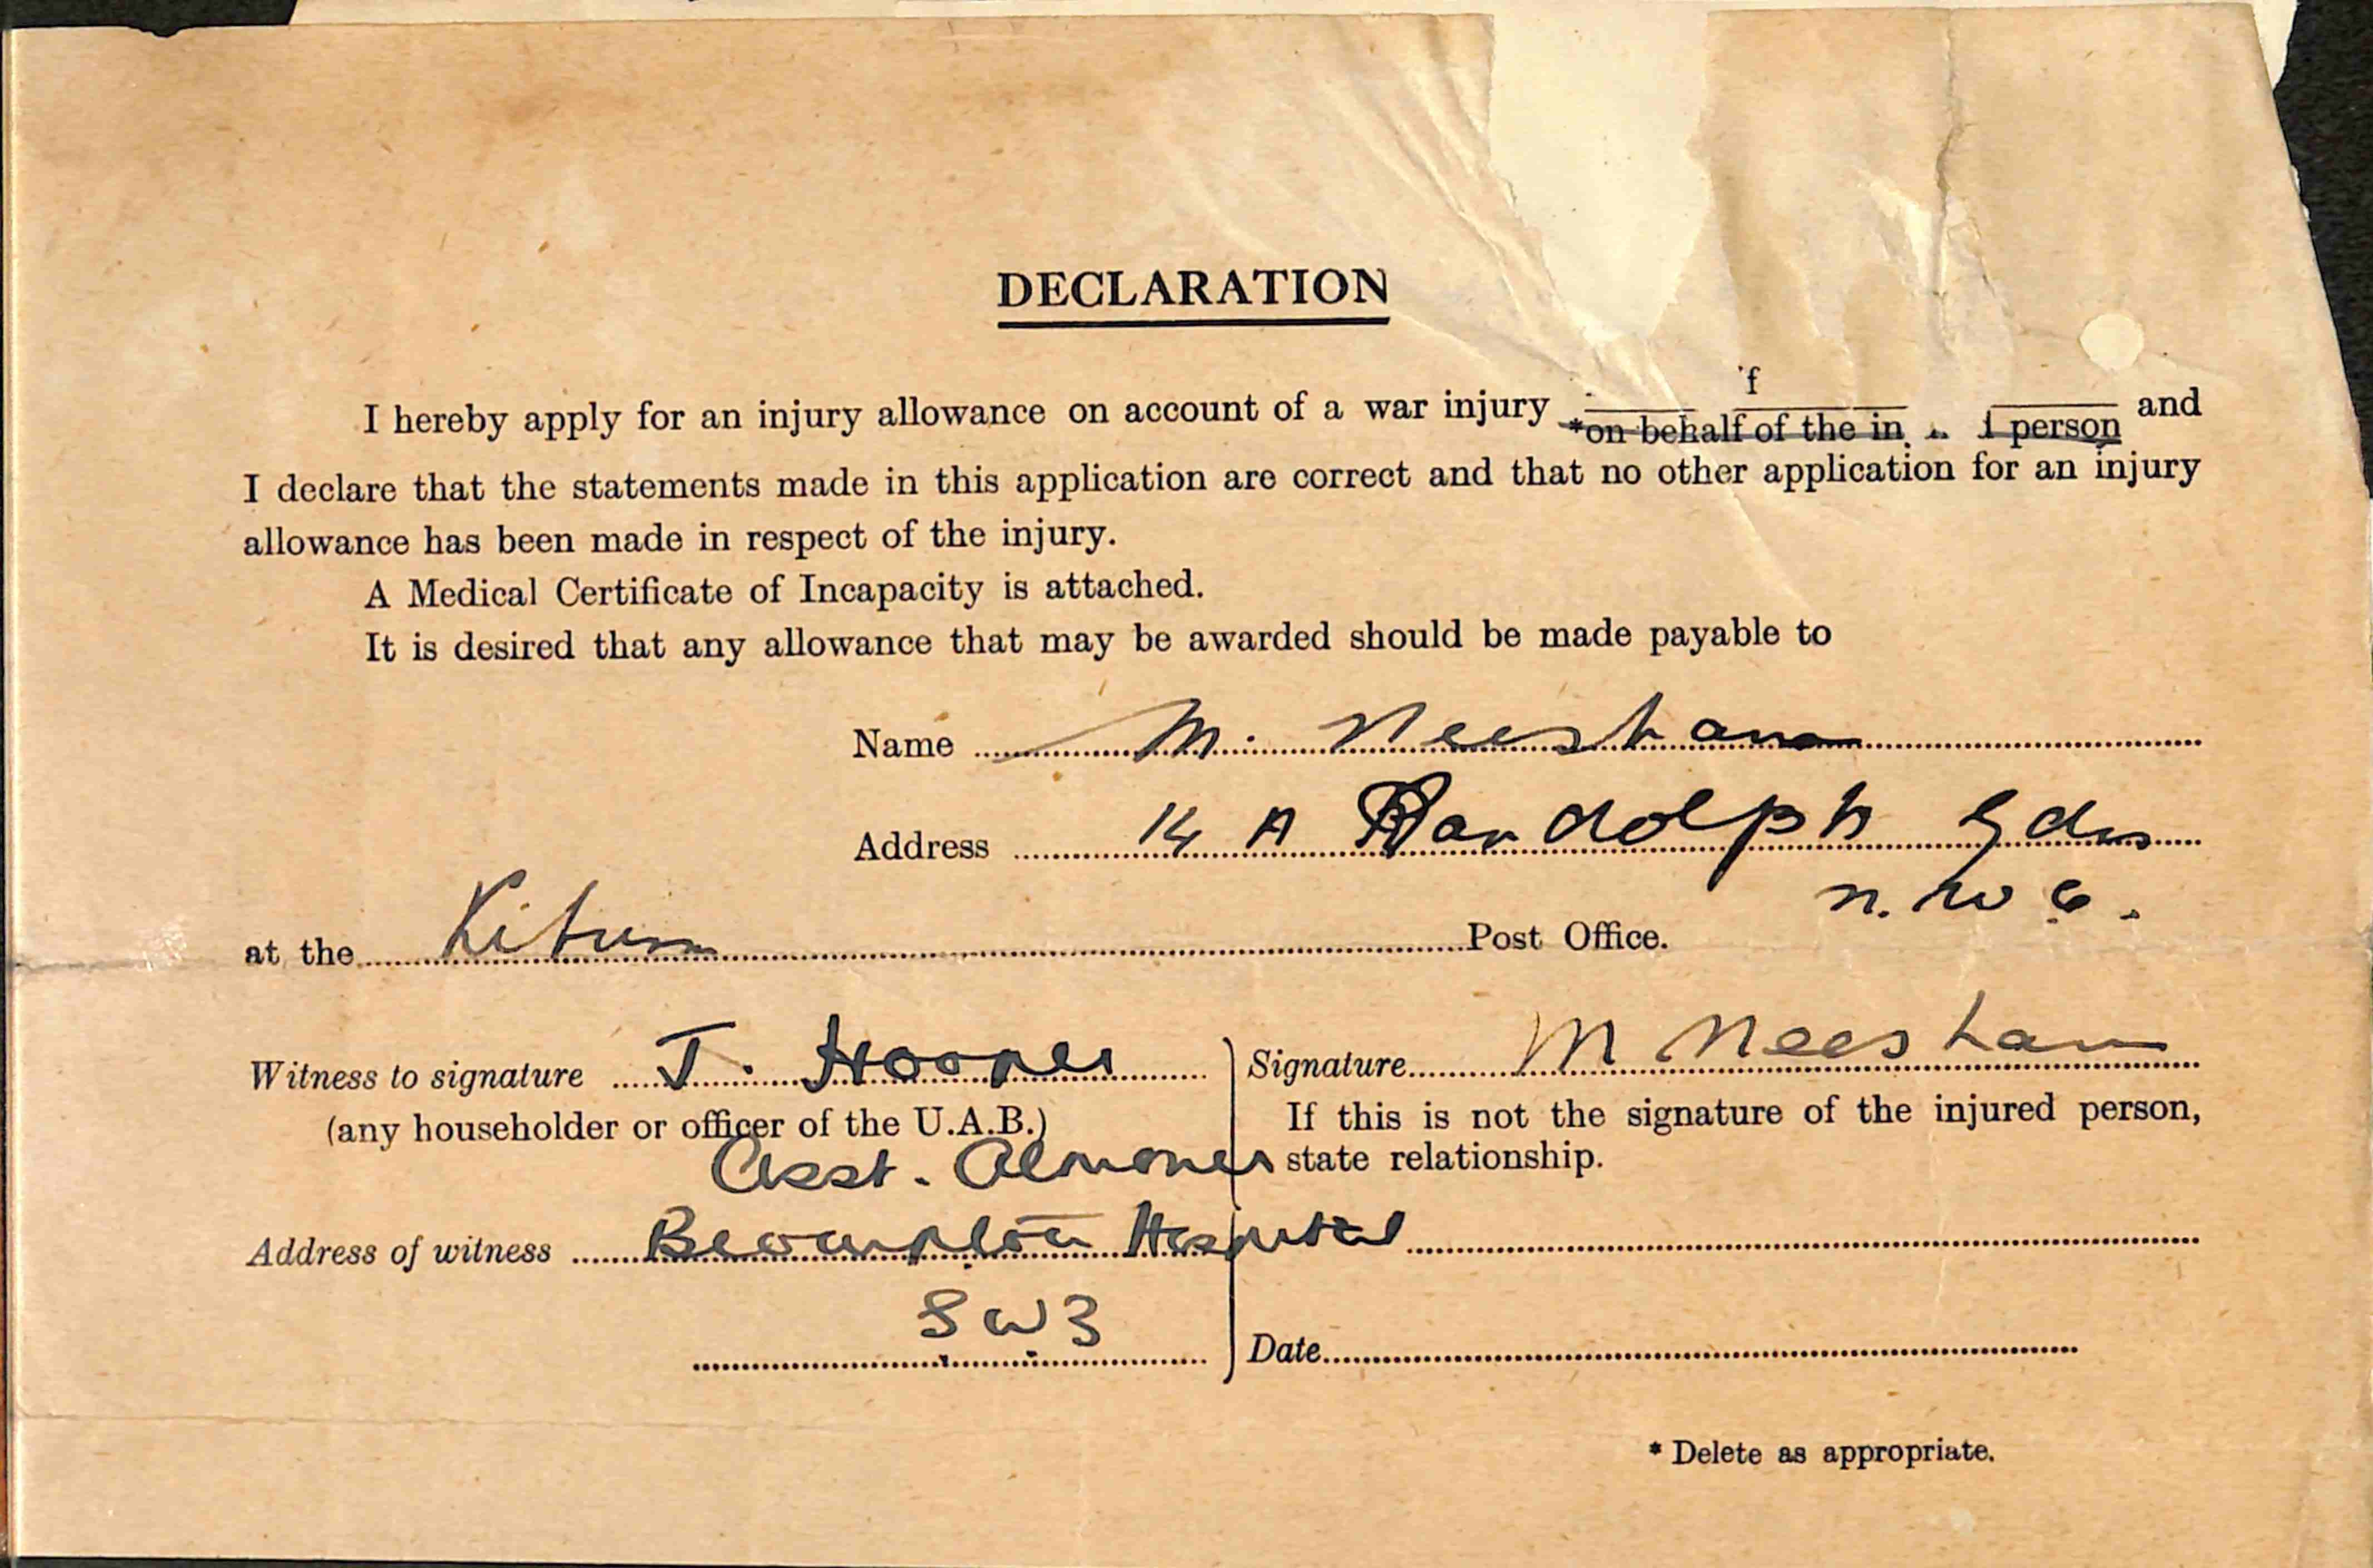 DECLARATION
f
I hereby apply for an injury allowance on account of a war injury *on behalf of the in d person and
I declare that the statements made in this application are correct and that no other application for an injury
allowance has been made in respect of the injury.
A Medical Certificate of Incapacity is attached.
It is desired that any allowance that may be awarded should be made payable to
Name M. Neesham
Address 14 A Randolph Gdns
N. W 6.
at the Post Office.
Witness to signature J. Hooper
(any householder or officer of the U.A.B.)
Asst. Almoner
Address of witness Brompton Hospital
SW3
Signature M Neesham
If this is not the signature of the injured person,
state relationship.
Date
* Delete as appropriate.